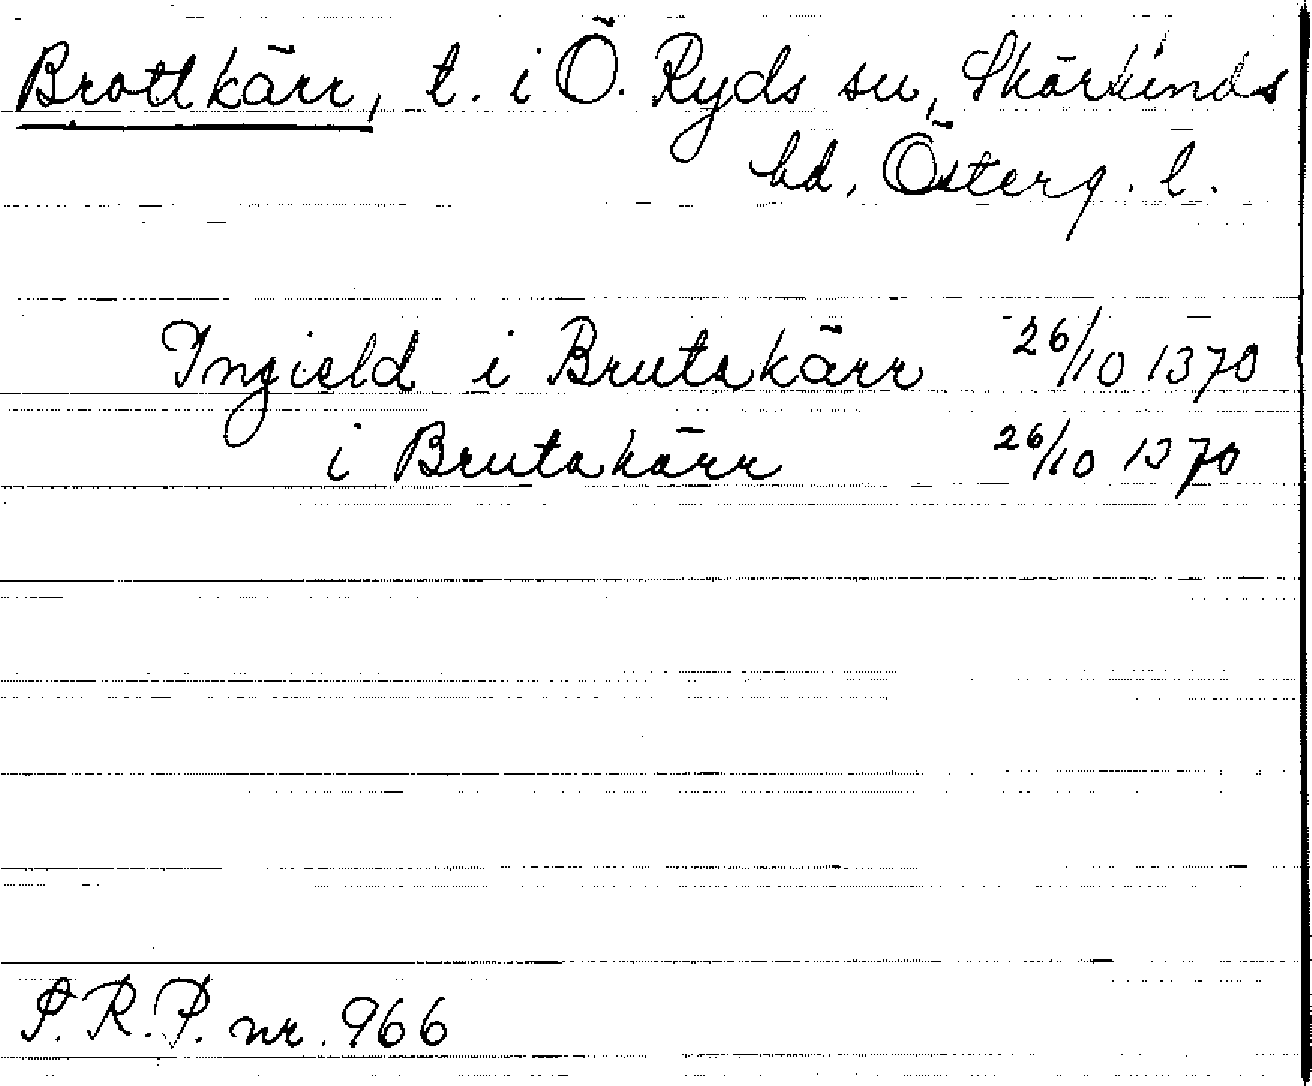 Brottkärr, t. i Ö. Ryds sn, Skärkinds
hd, Österg. l.
Ingield i Brutakärr 26/10 1370
i Brutakärr 26/10 1370
S.R.P. nr. 966